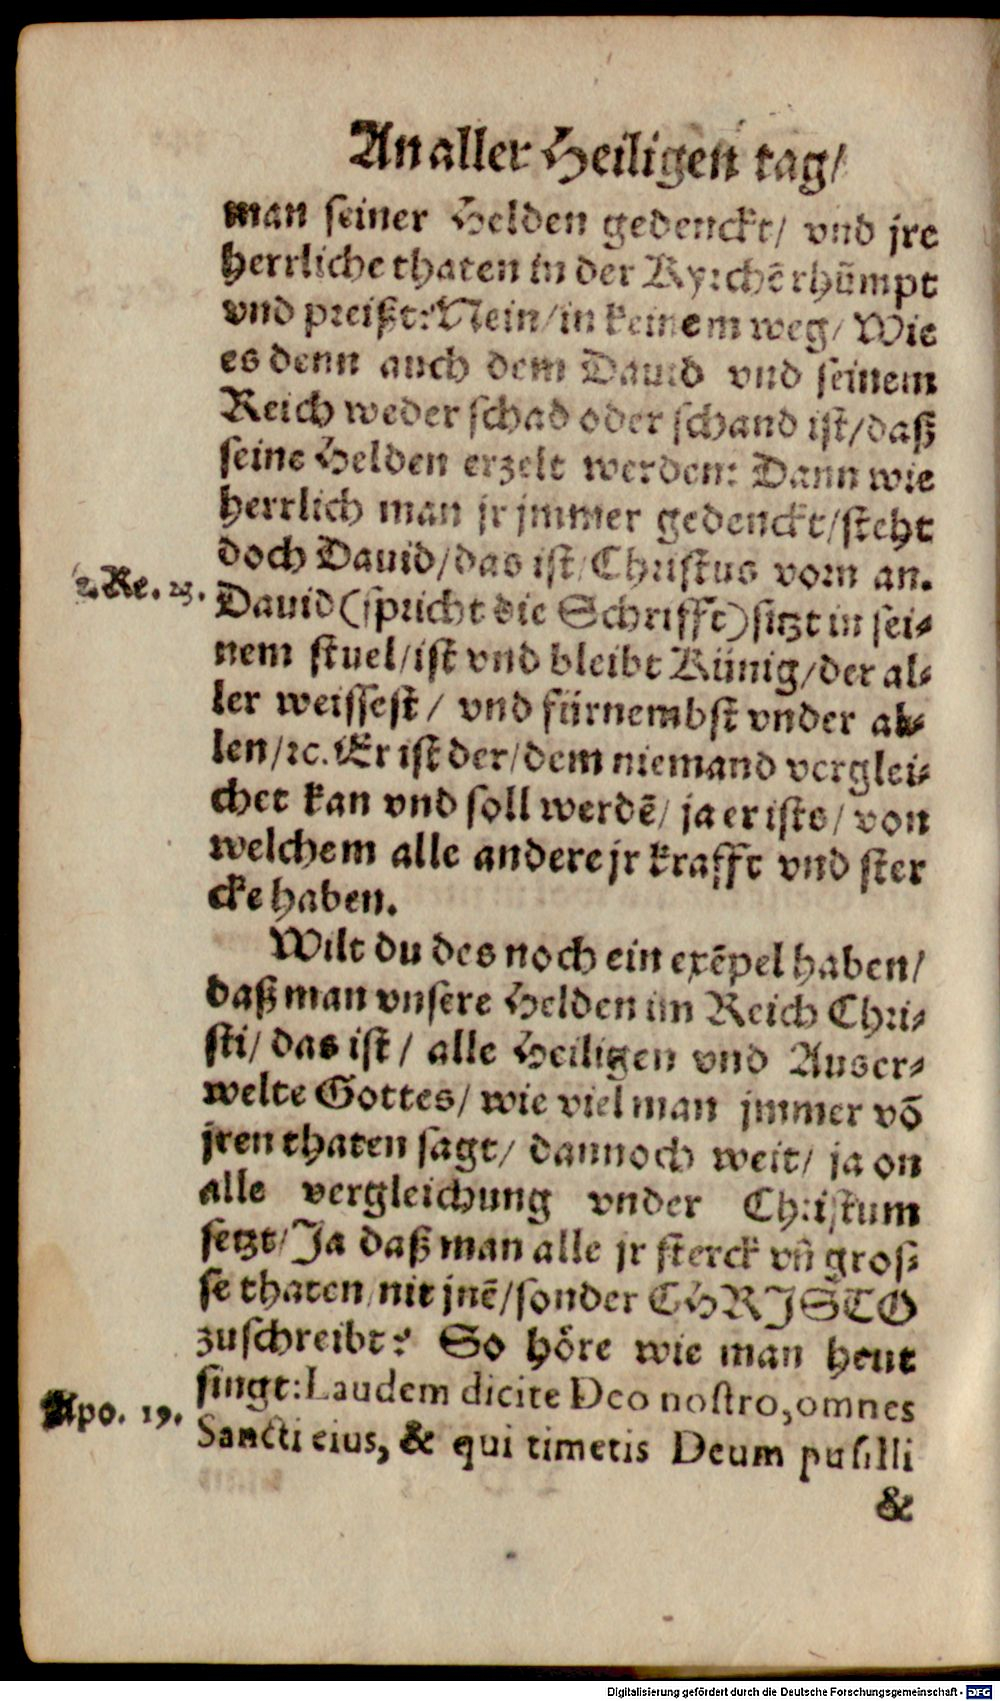 An aller Heiligen tag/
man seiner Helden gedenckt/ vnd jre
herrliche thaten in der Kyrchē rhümpt
vnd preißt: Nein/in keinem weg/ Wie
es denn auch dem Dauid vnd seinem
Reich weder schad oder schand ist/daß
seine Helden erzelt werden: Dann wie
herrlich man jr jmmer gedenckt/steht
doch Dauid/das ist/Christus vorn an.
2. Re. 23. Dauid (spricht die Schrifft) sitzt in sei-
nem stuel/ist vnd bleibt Künig/der al-
ler weissest/ vnd fürnembst vnder al-
len/ꝛc. Er ist der/dem niemand verglei-
chet kan vnd soll werdē/ ja er ists/ von
welchem alle andere jr krafft vnd ster
cke haben.
Wilt du des noch ein exēpel haben/
daß man vnsere Helden im Reich Chri-
sti/ das ist/ alle Heiligen vnd Auser-
welte Gottes/ wie viel man jmmer vō
jren thaten sagt/ dannoch weit/ ja on
alle vergleichung vnder Christum
setzt/ Ja daß man alle jr sterck vn̄ gros-
se thaten/nit jnē/sonder CHRISTO
zuschreibt? So höre wie man heut
singt: Laudem dicite Deo nostro, omnes
Apo. 19. Sancti eius, & qui timetis Deum pusilli
&
Digitalisierung gefördert durch die Deutsche Forschungsgemeinschaft - DFG